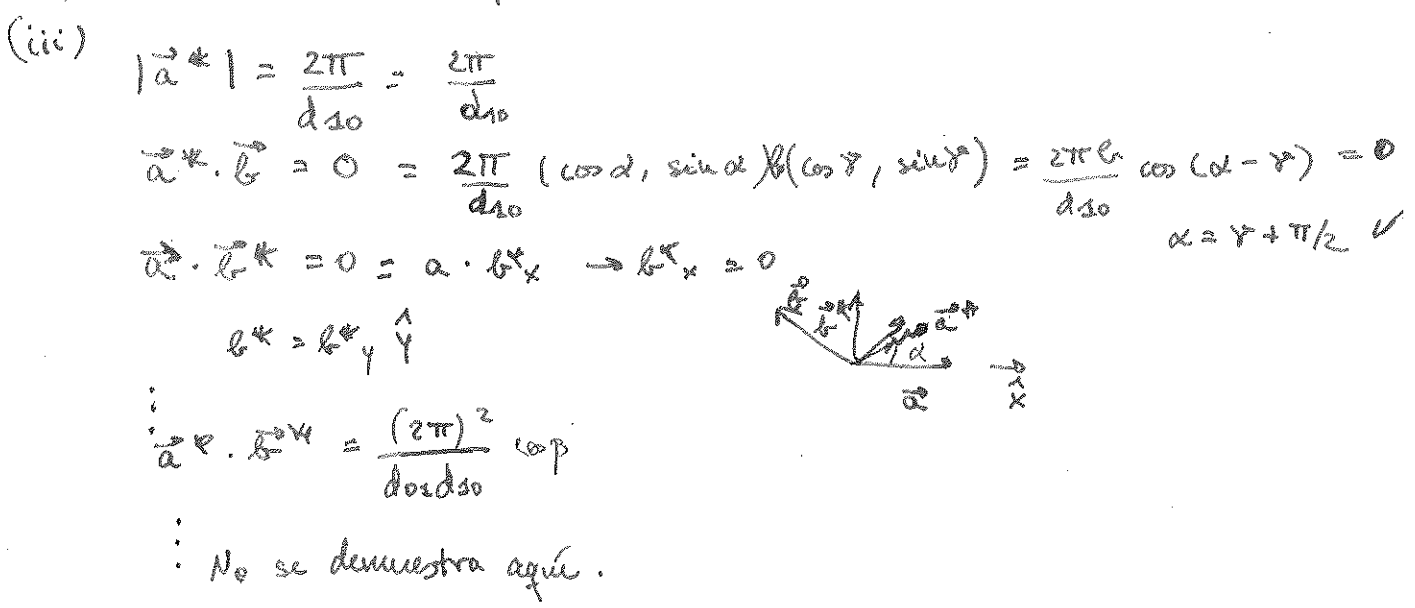 (iii)
|a⃗*| = 2π/d₁₀ = 2π/d₁₀
a⃗*·b⃗ = 0 = 2π/d₁₀ (cos α, sin α) b(cos γ, sin γ) = 2πb/d₁₀ cos (α - γ) = 0
α = γ + π/2 ✓
a⃗·b⃗* = 0 = a·b*ₓ → b*ₓ = 0
b* = b*y ŷ
b⃗ b⃗* a⃗* α
a⃗ x̂
⋮
a⃗*·b⃗* = (2π)²/d₀₁d₁₀ cos β
⋮ No se demuestra aquí.